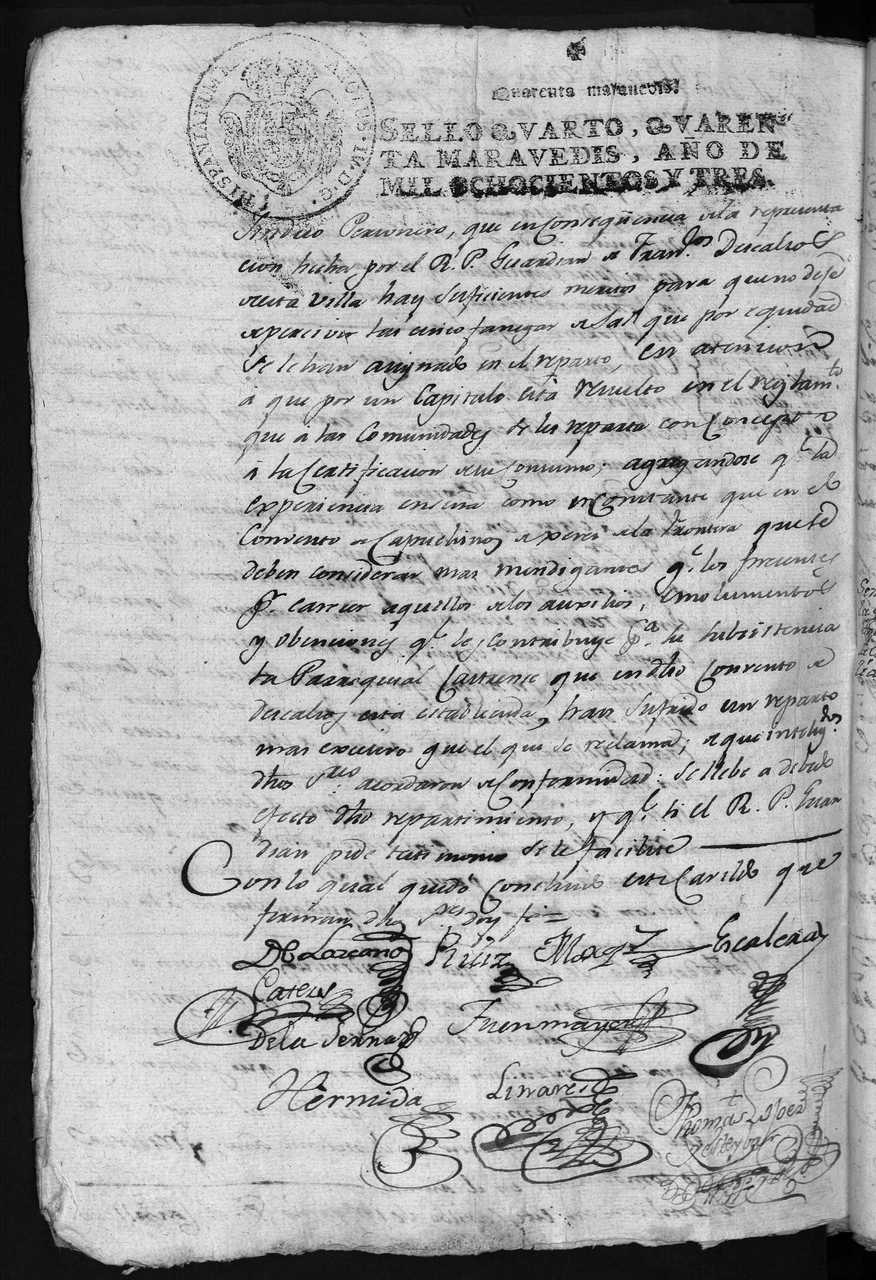 HISPANIARUM R CAROLUS IV D G
Quarenta maravedis.
SELLO QVARTO, QVAREN-
TA MARAVEDIS, AÑO DE
MIL OCHOCIENTOS Y TRES.
Sindico Personero, que en conseqüencia de la representa
cion hecha por el R. P. Guardian de Fran.cos Descalsos
de esta Villa hay suficientes meritos para que no deje
de percivir las cinco fanegas de Sal que por equidad
se le han asignado en el reparto, en atencion
a que por un Capitulo está resuelto en el reglam.to
que á las Comunidades se les reparta con concepto
á la Certificacion de su consumo; agregandose q.e la
experiencia enseña como inconstante que en el
Convento de Capuchinos de Xerez de la Frontera que se
deben considerar mas mendigantes q.e los presentes
p.r carecer aquellos de los auxilios, emolumentos
y obenciones q.e les contribuye p.a su subsistencia
la Parroquial Castrense que en dho Convento de
descalsos está establecida, han sufrido un reparto
mas excesivo que el que se reclama; de que intelig.dos
dhos S.res acordaron de conformidad: se llebe a debido
efecto dho repartimiento, y q.e si el R. P. Guar
dian pide testimonio se le facilite
Con lo qual quedó concluido este Cavildo que
firman dhos S.res doy fe=
De Lozcano Ruiz Marq.z Escalera
Dela Serna Fuenmayor
Hermida Linares
Thomas Lopez